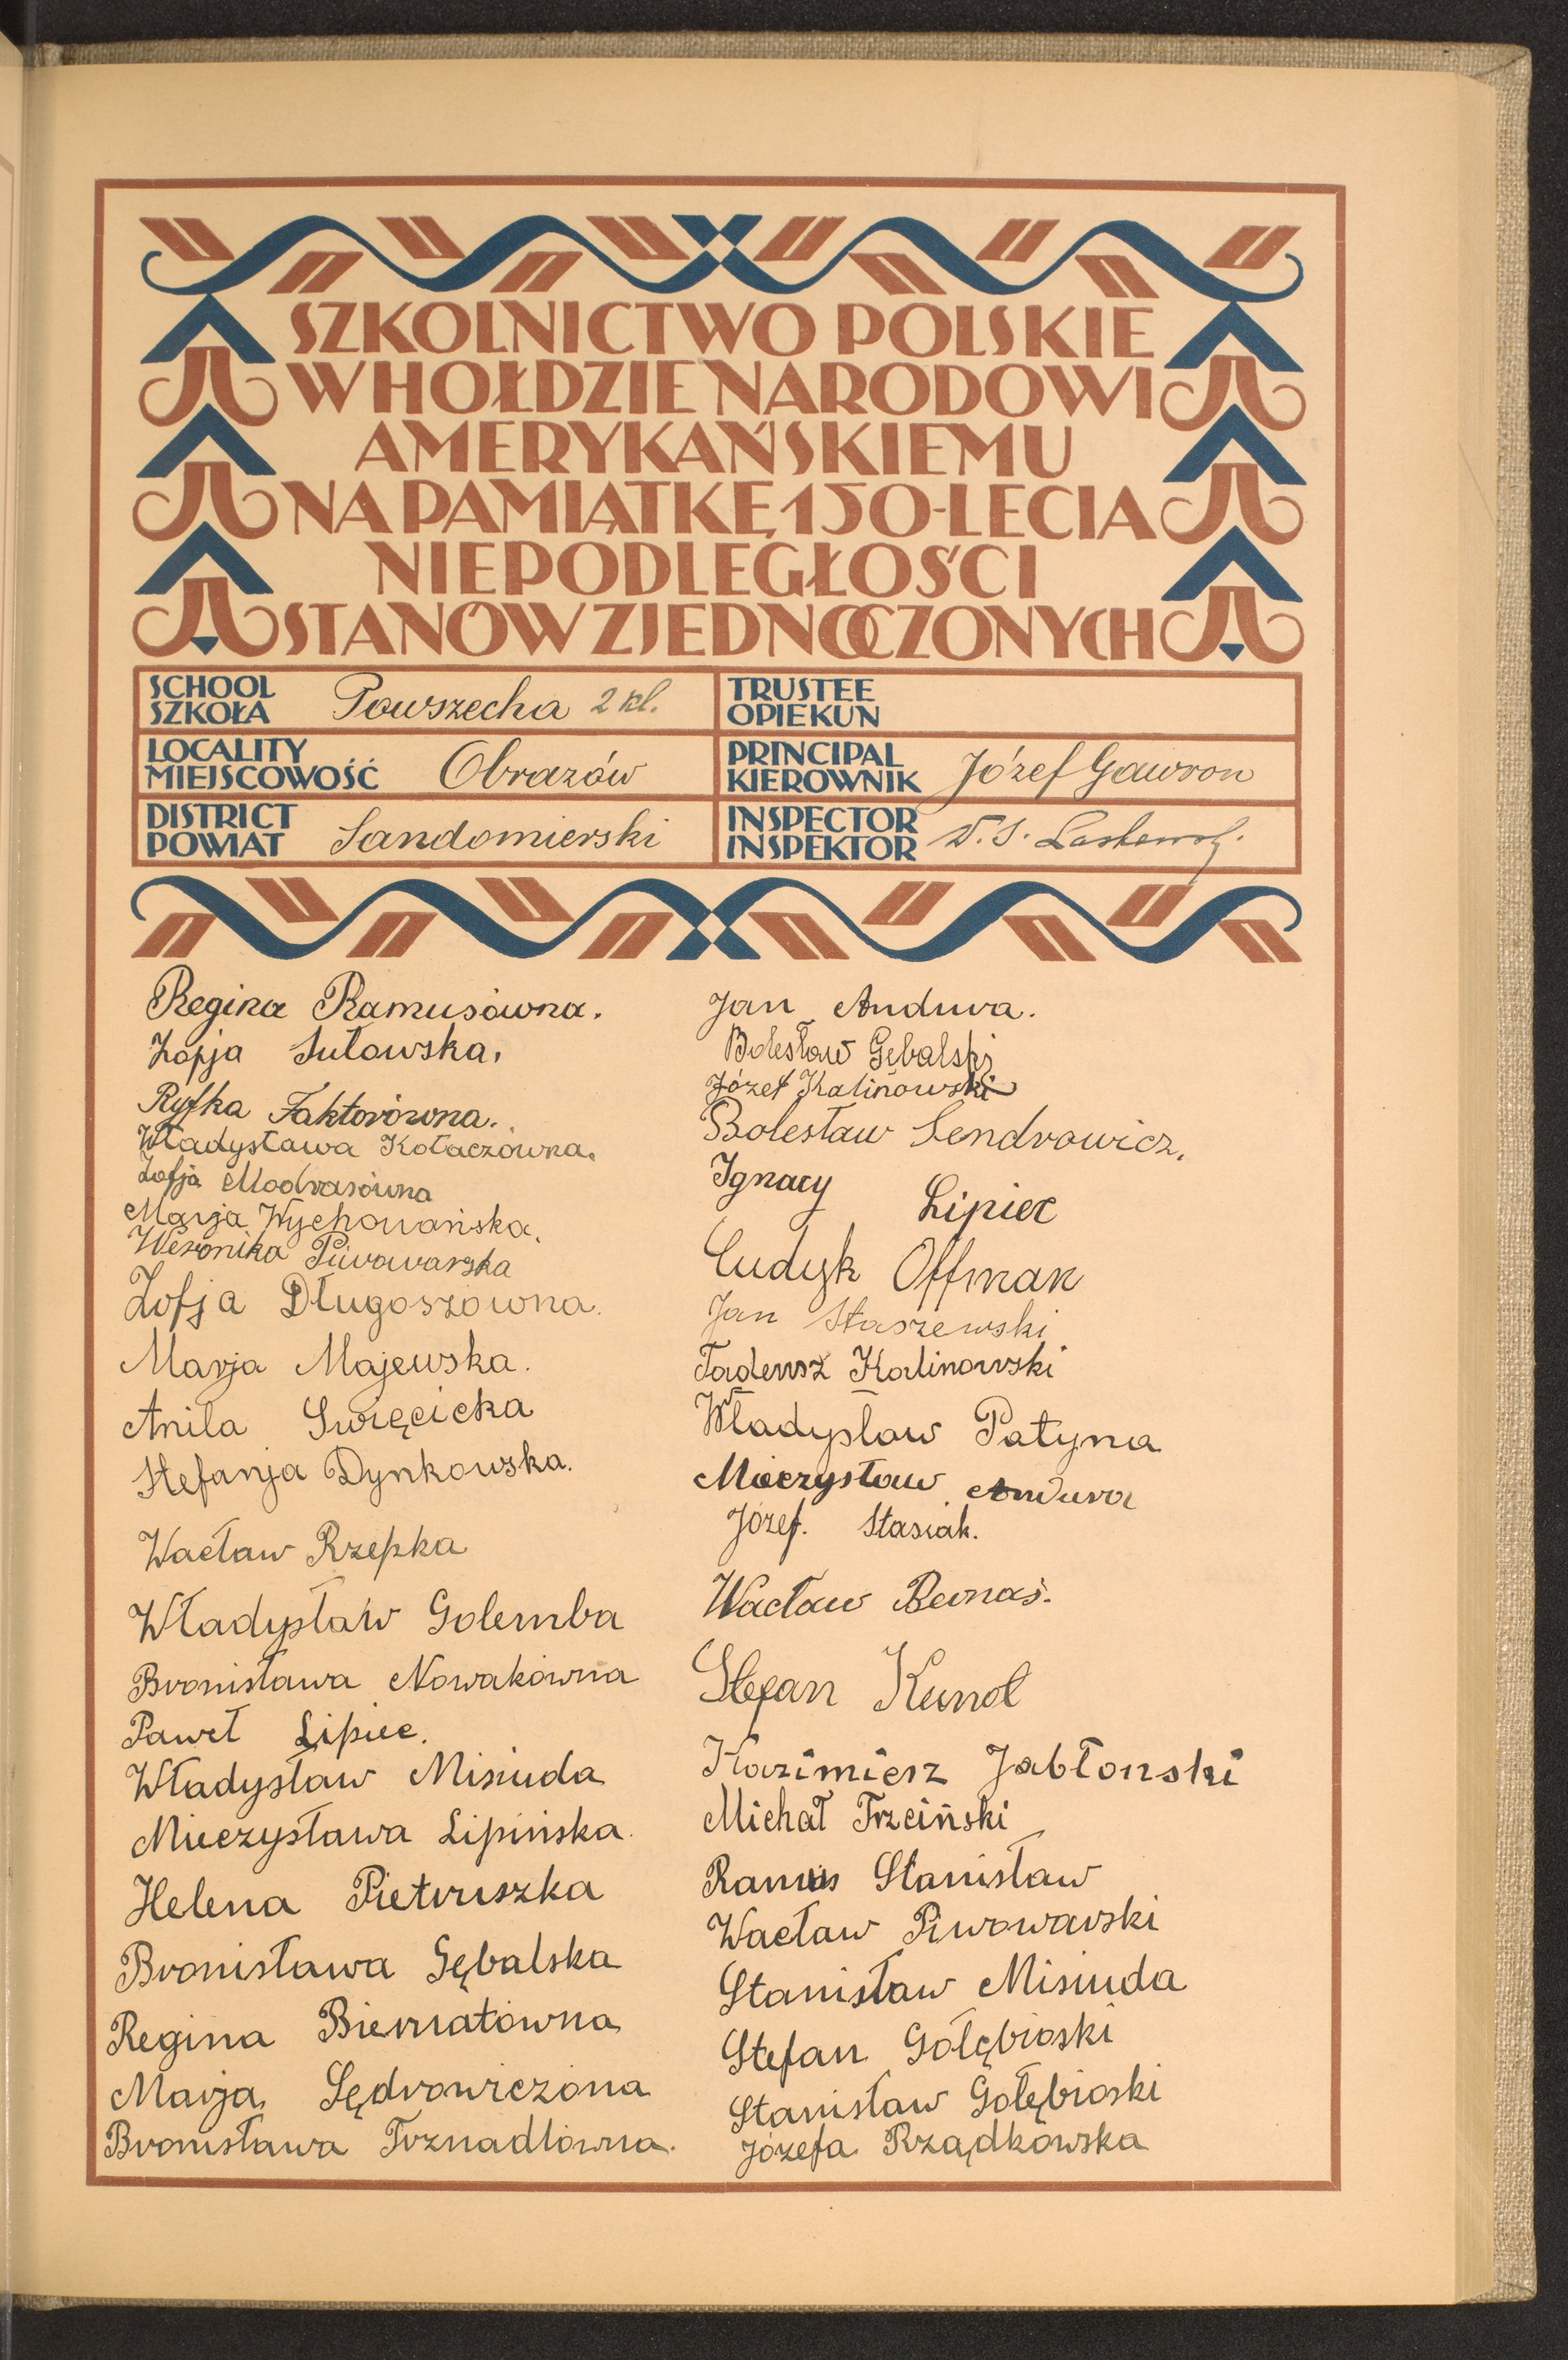 SZKOLNICTWO POLSKIE
W HOŁDZIE NARODOWI
AMERYKAŃSKIEMU
NA PAMIĄTKĘ 150-LECIA
NIEPODLEGŁOŚCI
STANÓW ZJEDNOCZONYCH
SCHOOL
SZKOŁA
Powszecha 2 kl.
TRUSTEE
OPIEKUN
LOCALITY
MIEJSCOWOŚĆ
Obrazów
PRINCIPAL
KIEROWNIK
Józef Gawron
DISTRICT
POWIAT
Sandomierski
INSPECTOR
INSPEKTOR
Regina Ramusówna.
Zofja Sułowska.
Ryfka Faktorówna.
Władysława Kołaczówna.
Zofja Modrasówna
Marja Wychowańska.
Weronika Piwowarska
Zofja Długoszówna.
Marja Majewska.
Anila Swięcicka
Stefanja Dynkowska.
Wacław Rzepka
Władysław Golemba
Bronisława Nowakówna
Paweł Lipiec.
Władysław Misiuda
Mieczysława Lipińska.
Helena Pietruszka
Bronisława Gębalska
Regina Biernatówna
Marja Sędrowiczóna
Bronisława Trznadlówna.
Jan Andura.
Bolesław Gębalski
Józef Kalinowski
Bolesław Sendrowicz.
Ignacy Lipiec
Ludyk Offman
Jan Staszewski
Tadeusz Kalinowski
Władysław Patyna
Mieczysław Andura
Józef. Stasiak.
Wacław Bernaś.
Stefan Kunol
Kazimierz Jabłonski
Michał Trzciński
Ramus Stanisław
Wacław Piwowarski
Stanisław Misiuda
Stefan Gołębioski
Stanisław Gołębioski
Józefa Rządkowska